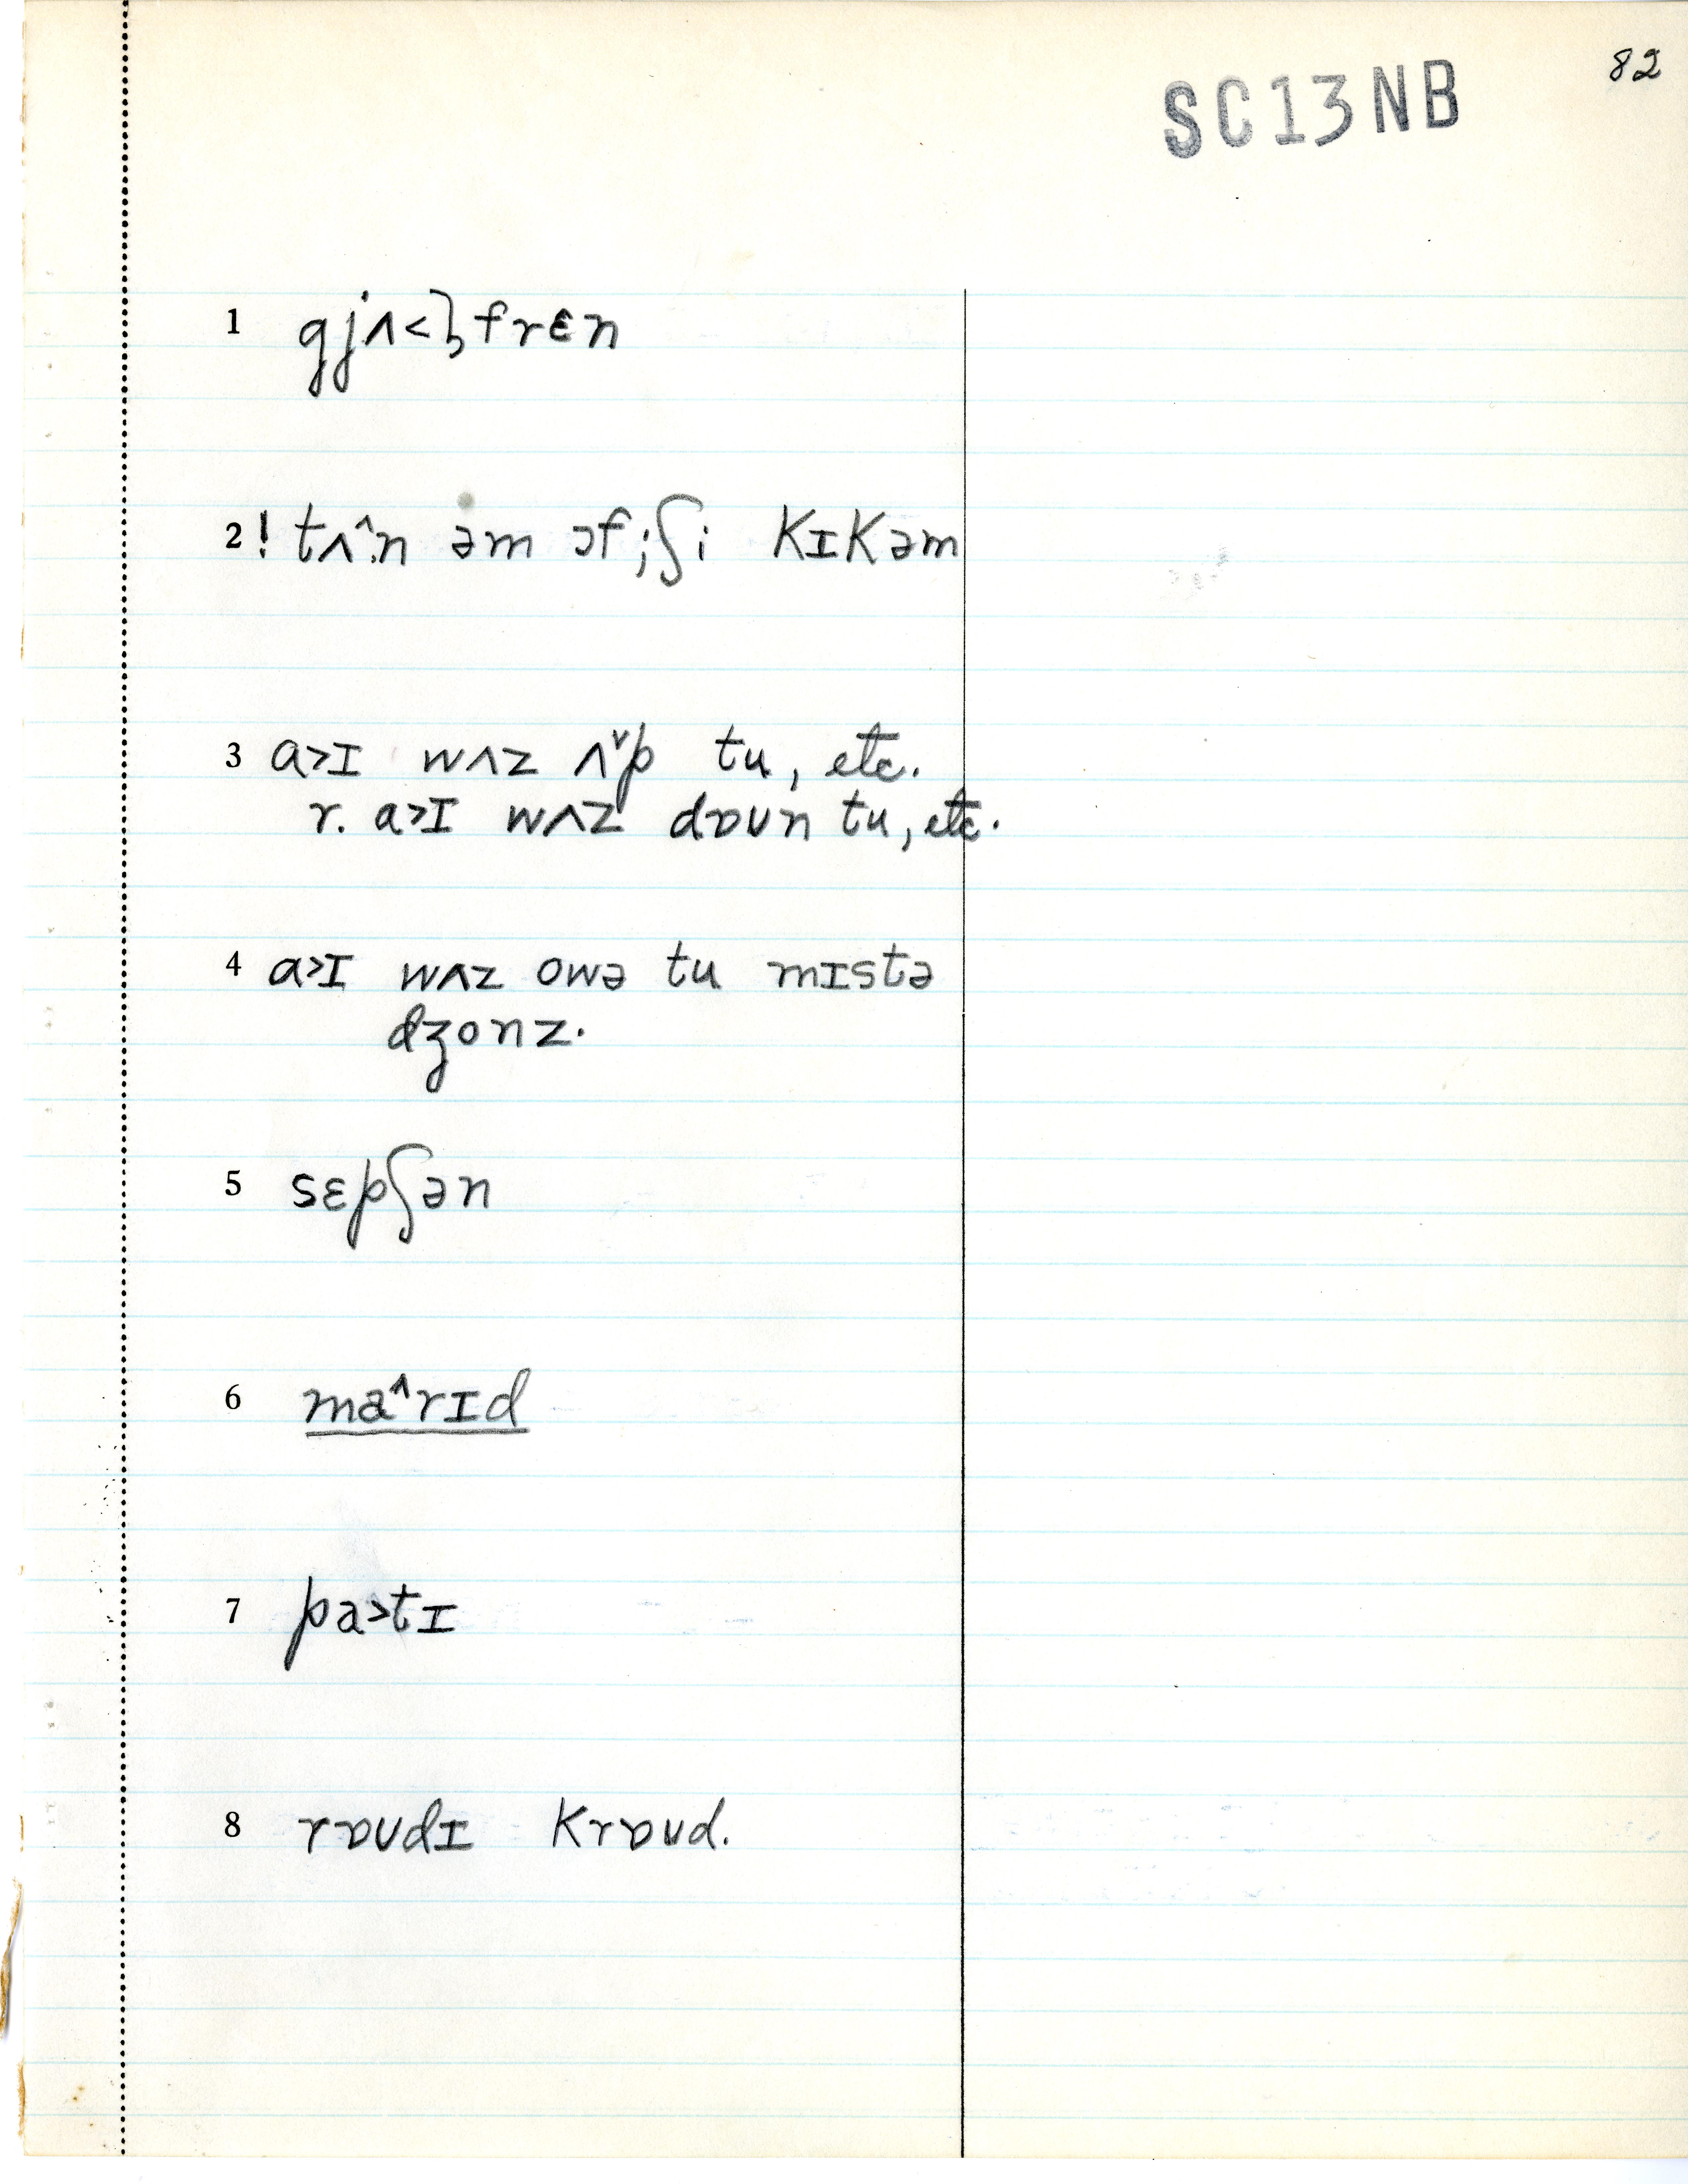 82
SC13NB
1 gjʌ<ɫfrɛn
2 ! tʌ^n əm ɔf; ʃi kɪkəm
3 a>ɪ wʌz ʌˇp tu, etc.
r. a>ɪ wʌz dɒun tu, etc.
4 a>ɪ wʌz owə tu mɪstə
dʒonz.
5 sɛpʃən
6 ma^rɪd
7 pa>tɪ
8 rɒudɪ krɒud.